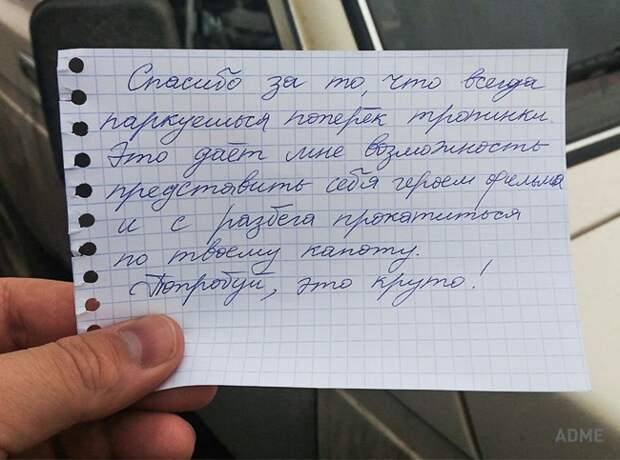 Спасибо за то, что всегда
паркуешься поперёк тропинки.
Это даёт мне возможность
представить себя героем фильма
и с разбега прокатиться
по твоему капоту.
Попробуй, это круто!
ADME